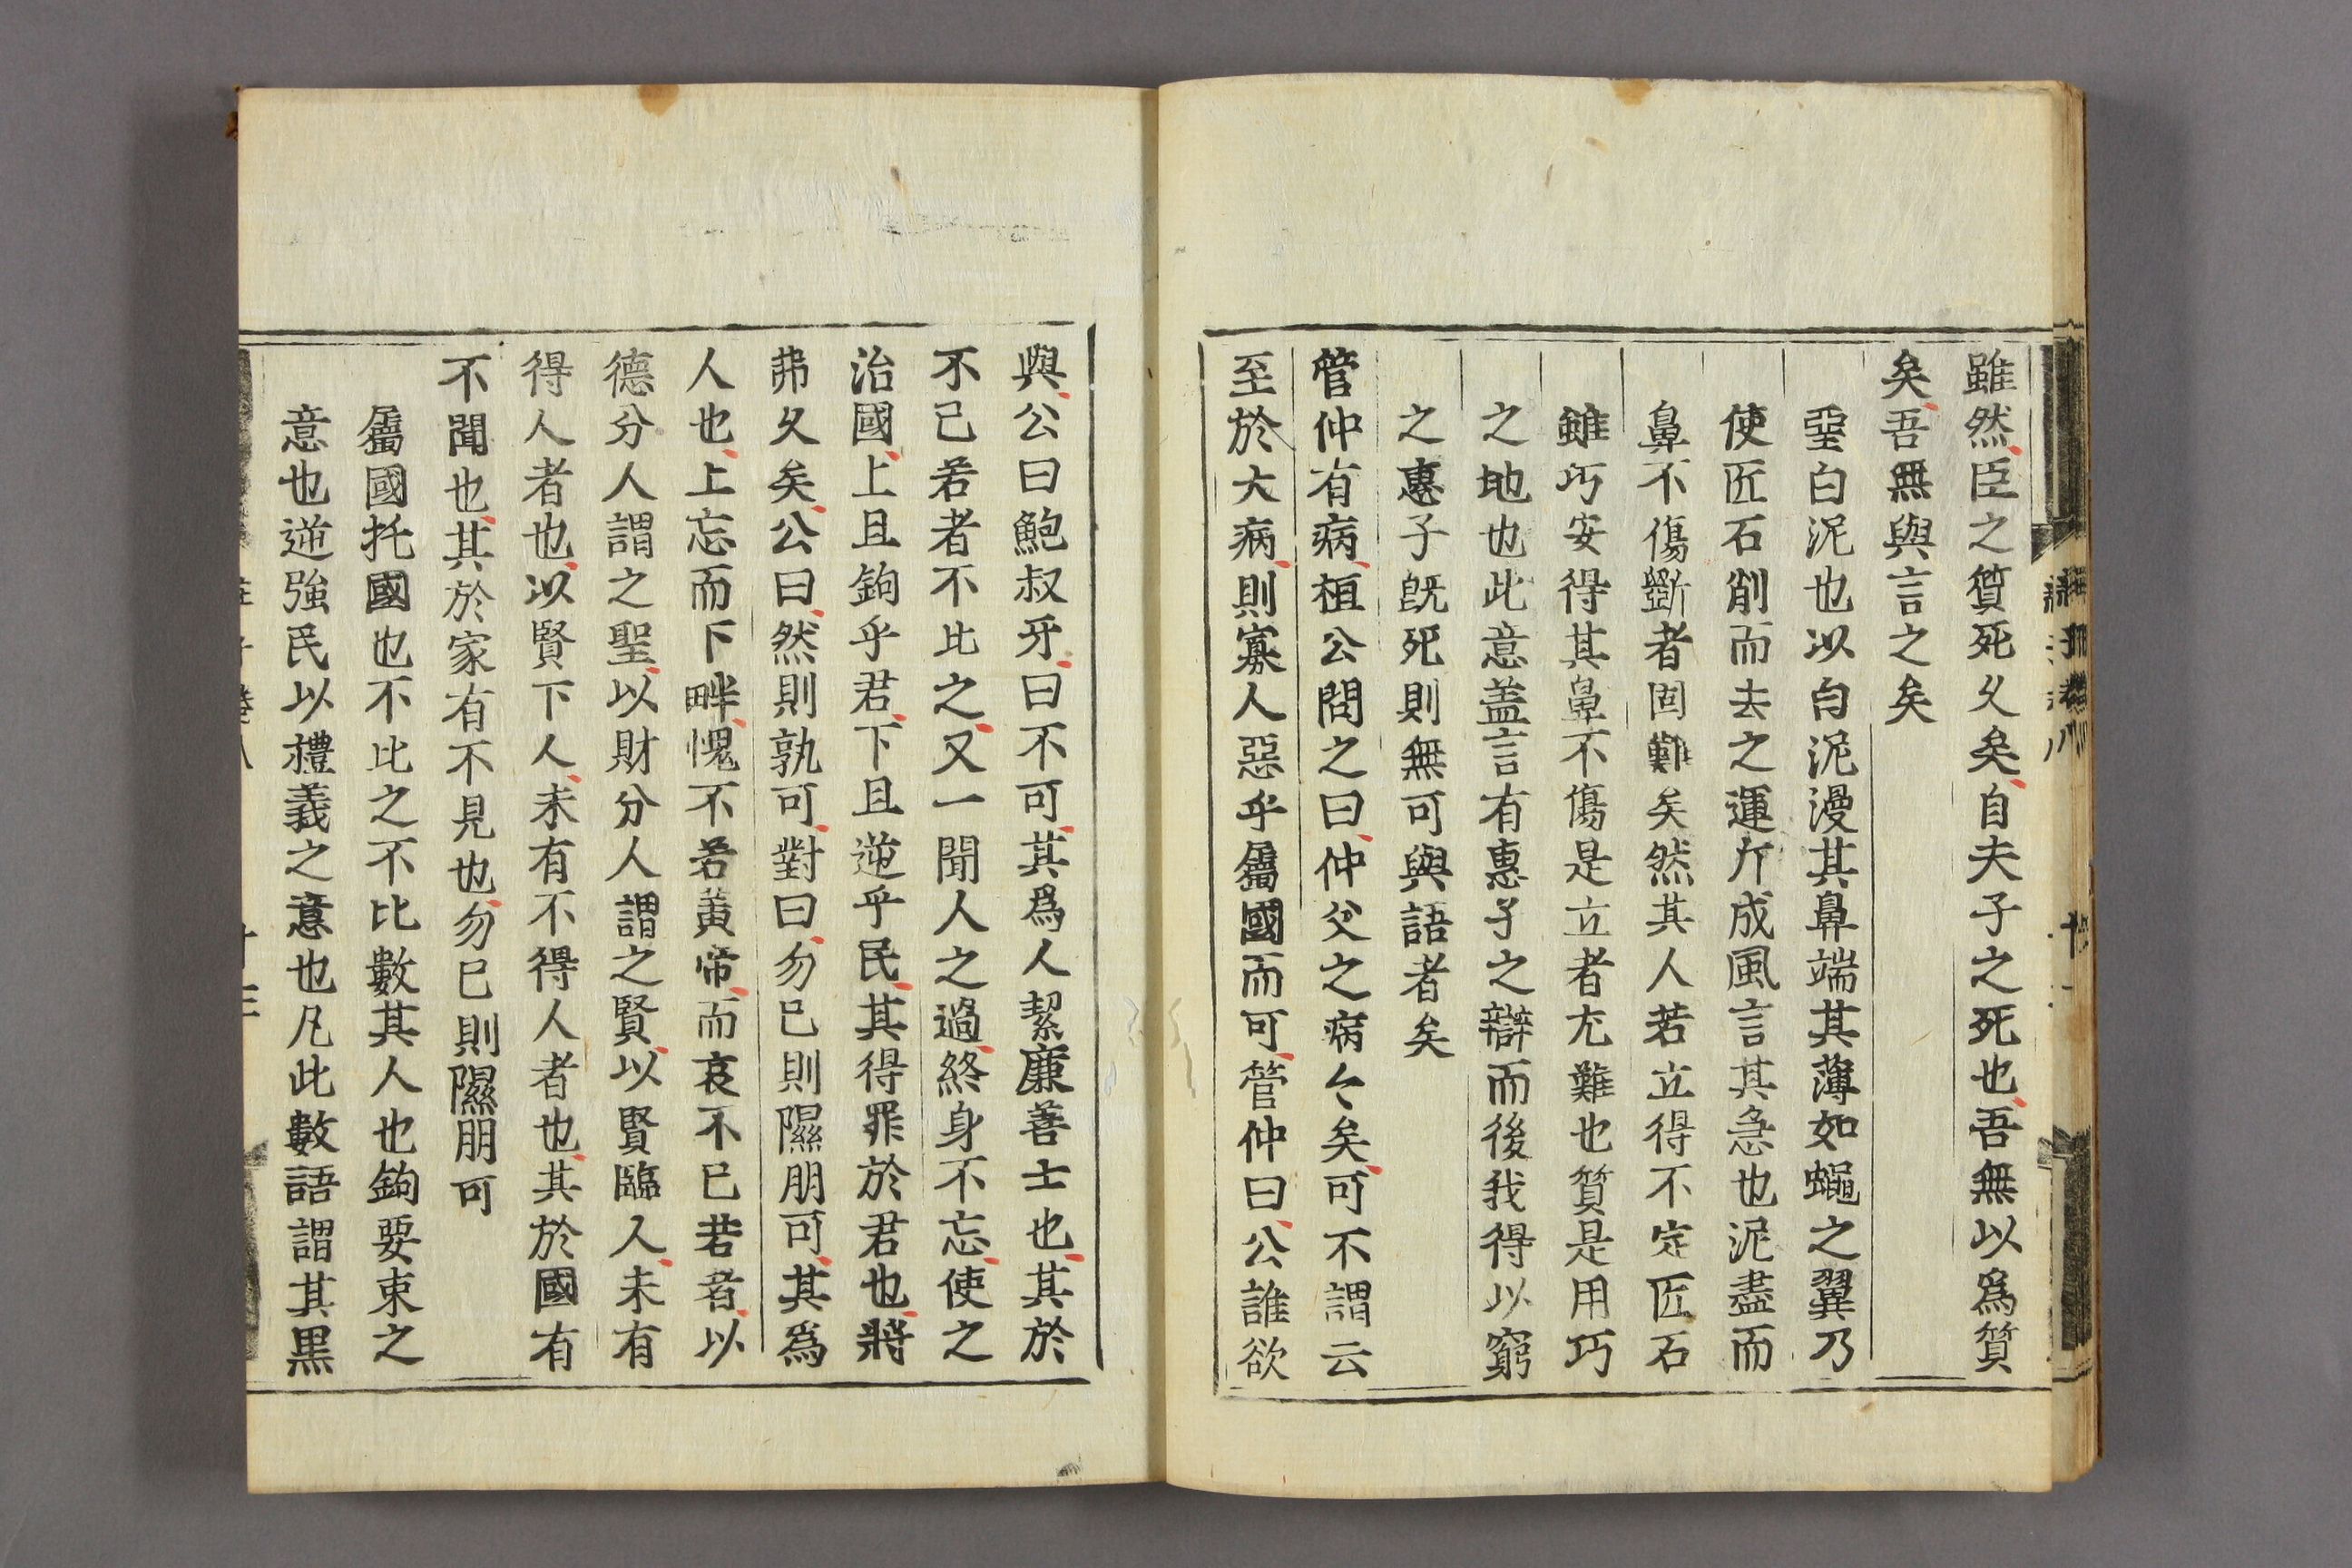 雖然臣之質死久矣自夫子之死也吾無以爲質
矣吾無與言之矣
堊白泥也以白泥漫其鼻端其薄如蠅之翼乃
使匠石削而去之運斤成風言其急也泥盡而
鼻不傷斵者固難矣然其人若立得不定匠石
雖巧安得其鼻不傷是立者尤難也質是用巧
之地也此意盖言有惠子之辯而後我得以窮
之惠子旣死則無可與語者矣
管仲有病桓公問之曰仲父之病々矣可不謂云
至於大病則寡人惡乎屬國而可管仲曰公誰欲
與公曰鮑叔牙曰不可其爲人絜廉善士也其於
不己若者不比之又一聞人之過終身不忘使之
治國上且鉤乎君下且逆乎民其得罪於君也將
弗久矣公曰然則孰可對曰勿已則隰朋可其爲
人也上忘而下畔愧不若黃帝而哀不已若者以
德分人謂之聖以財分人謂之賢以賢臨人未有
得人者也以賢下人未有不得人者也其於國有
不聞也其於家有不見也勿已則隰朋可
屬國托國也不比之不比數其人也鉤要束之
意也逆強民以禮義之意也凡此數語謂其黑